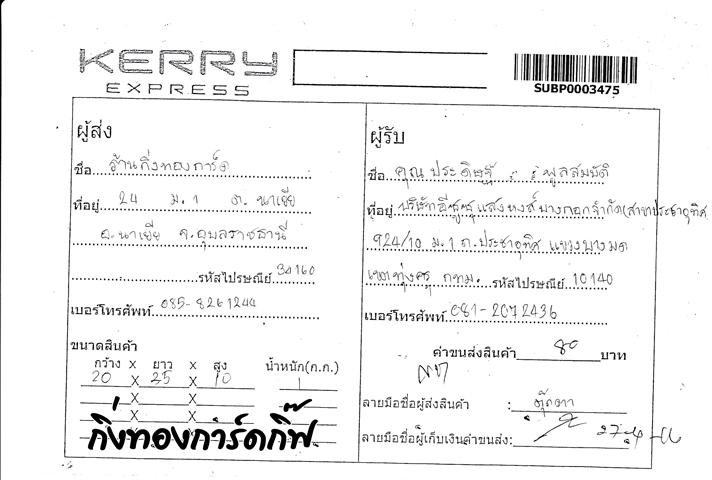 KERRY
EXPRESS
SUBP0003475
ผู้ส่ง
ชื่อ ร้านกิ่งทองการ์ด
ที่อยู่ 24 ม.1 ต. นาเยีย
อ.นาเยีย จ.อุบลราชธานี
รหัสไปรษณีย์ 34160
เบอร์โทรศัพท์ 085-8261244
ขนาดสินค้า
กว้าง x ยาว x สูง น้ำหนัก(ก.ก.)
20 X 25 X 10 1
X X
X X
X X
กิ่งทองการ์ดกิ๊ฟ
ผู้รับ
ชื่อ คุณ ประดิษฐ์ พูลสมบัติ
ที่อยู่ บริษัทอีซูซุแสงหงส์บางกอกจำกัด(สาขาประชาอุทิศ
924/10 ม.1 ถ.ประชาอุทิศ แขวงบางมด
เขตทุ่งครุ กทม. รหัสไปรษณีย์ 10140
เบอร์โทรศัพท์ 081-2072436
ค่าขนส่งสินค้า 80 บาท
ลายมือชื่อผู้ส่งสินค้า : ตุ๊กตา
ลายมือชื่อผู้เก็บเงินค่าขนส่ง: